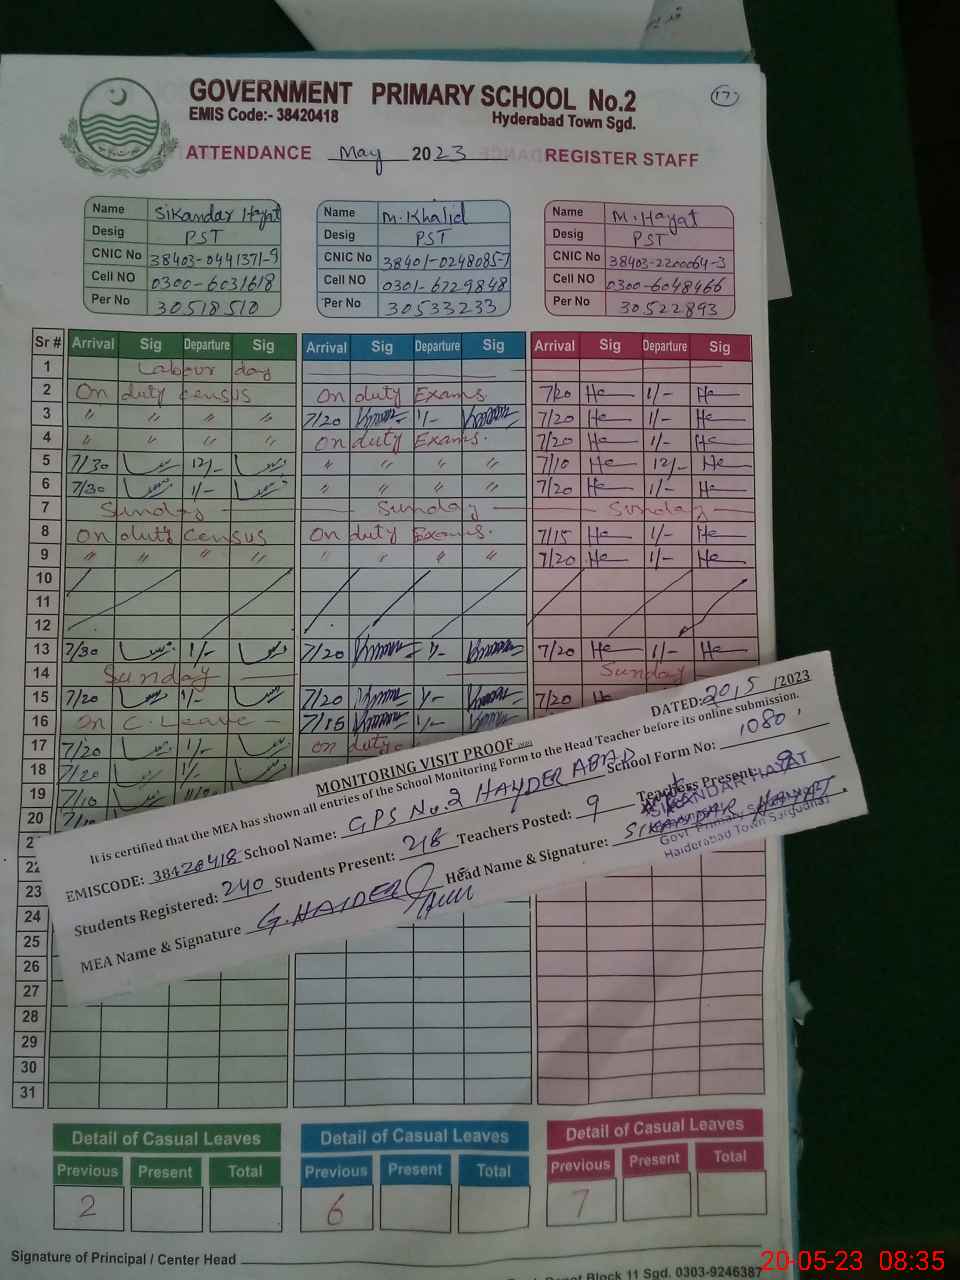 GOVERNMENT PRIMARY SCHOOL No.2
17
EMIS Code:- 38420418 Hyderabad Town Sgd.
ATTENDANCE May 2023 REGISTER STAFF
Name Sikandar Hayat Name M. Khalid Name M. Hayat
Desig PST Desig PST Desig PST
CNIC No 38403-0441371-9 CNIC No 38401-0248085-7 CNIC No 38403-2200064-3
Cell NO 0300-6031618 Cell NO 0301-6729848 Cell NO 0300-6048466
Per No 30518510 Per No 30533233 Per No 30522893
Sr # Arrival Sig Departure Sig Arrival Sig Departure Sig Arrival Sig Departure Sig
1 Labour day
2 On duty census On duty Exams 7/20 1/-
3 " " " " 7/20 1/- 7/20 1/-
4 " " " " On duty Exams. 7/20 1/-
5 7/30 12/- " " " " 7/10 12/-
6 7/30 1/- " " " " 7/20 1/-
7 Sunday Sunday Sunday
8 On duty census On duty Exams. 7/15 1/-
9 " " " " " " " " 7/20 1/-
10
11
12
13 7/30 1/- 7/20 1/- 7/20 1/-
14 Sunday Sunday
15 7/20 1/- 7/20 1/- 7/20
16 On C. Leave - 7/15 1/-
17 7/20 1/- On duty
18 7/20 1/-
19 7/10
20
22
23
24
25
26
27
28
29
30
31
MONITORING VISIT PROOF DATED: 20/5/2023
It is certified that the MEA has shown all entries of the School Monitoring Form to the Head Teacher before its online submission.
EMISCODE: 38420418 School Name: GPS No.2 HAYDER ABAD School Form No: 1080
Students Registered: 240 Students Present: 218 Teachers Posted: 9 Teachers Present: 9
MEA Name & Signature G. HAIDER Head Name & Signature: SIKANDAR HAYAT
SIKANDAR HAYAT
Govt. Primary
Haiderabad Town Sargodha
Detail of Casual Leaves Detail of Casual Leaves Detail of Casual Leaves
Previous Present Total Previous Present Total Previous Present Total
2 6 7
Signature of Principal / Center Head
Depot Block 11 Sgd. 0303-9246387
20-05-23 08:35